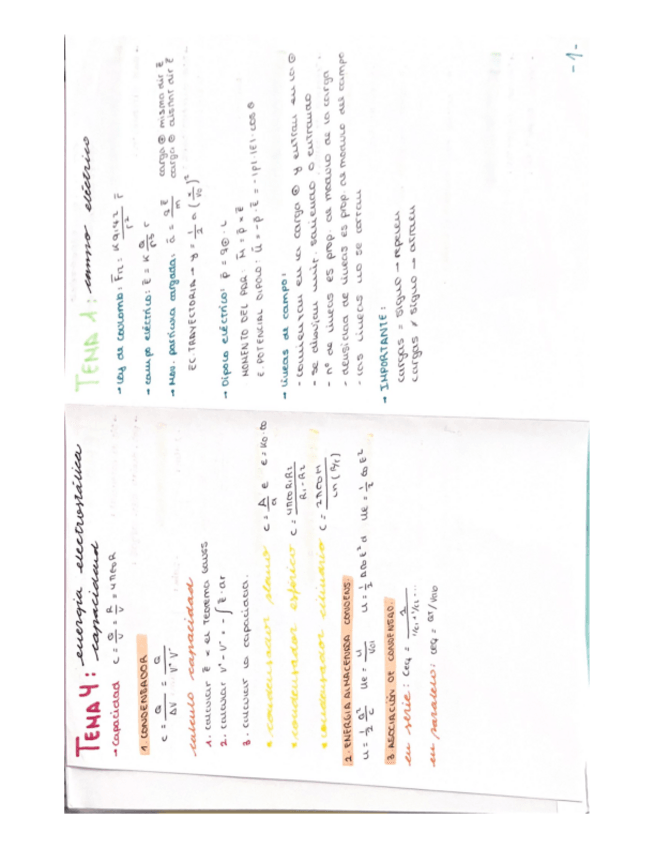 TEMA 4: energía electrostática
capacidad
→ capacidad C = Q/V = R/V = 4πε0R
1. CONDENSADOR
C = Q/ΔV = Q/V⁺V⁻
calculo capacidad
1. calcular E̅ x el Teorema Gauss
2. calcular V⁺-V⁻ = -∫E̅·dr
3. calcular la capacidad.
* condensador plano C = A/d ε ε = K0·ε0
* condensador esférico C = 4πε0R1R2/R1-R2
* condensador cilíndrico C = 2πε0H/Ln(R/r)
2. ENERGÍA ALMACENADA CONDENS.
U = 1/2 Q²/C Ue = U/Vol U = 1/2 Aε0E²d Ue = 1/2 ε0E²
3. ASOCIACIÓN DE CONDENSAD.
en serie: Ceq = 1/1/C1+1/C2...
en paralelo: Ceq = QT/Vab
TEMA 1: campo eléctrico
→ Ley de Coulomb: F̅12 = K q1·q2/r² r̅
→ Campo eléctrico: E̅ = K Q/r² r
→ Mov. partícula cargada: a̅ = qE̅/m carga ⊕ misma dir E̅
carga ⊖ distint dir E̅
EC. TRAYECTORIA → y = 1/2 a (x/v0)²
→ Dipolo eléctrico: p̅ = q⊕·L
MOMENTO DEL PAR: M̅ = p̅ x E̅
E. POTENCIAL DIPOLO: U̅ = -p̅·E̅ = -|p|·|E|·cos θ
→ Líneas de campo:
- comienzan en la carga ⊕ y entran en la ⊖
- se dibujan unif. saliendo o entrando
- nº de líneas es prop. al módulo de la carga
- densidad de líneas es prop. al módulo del campo
- las líneas no se cortan
→ IMPORTANTE:
cargas = signo → repelen
cargas ≠ signo → atraen
-1-